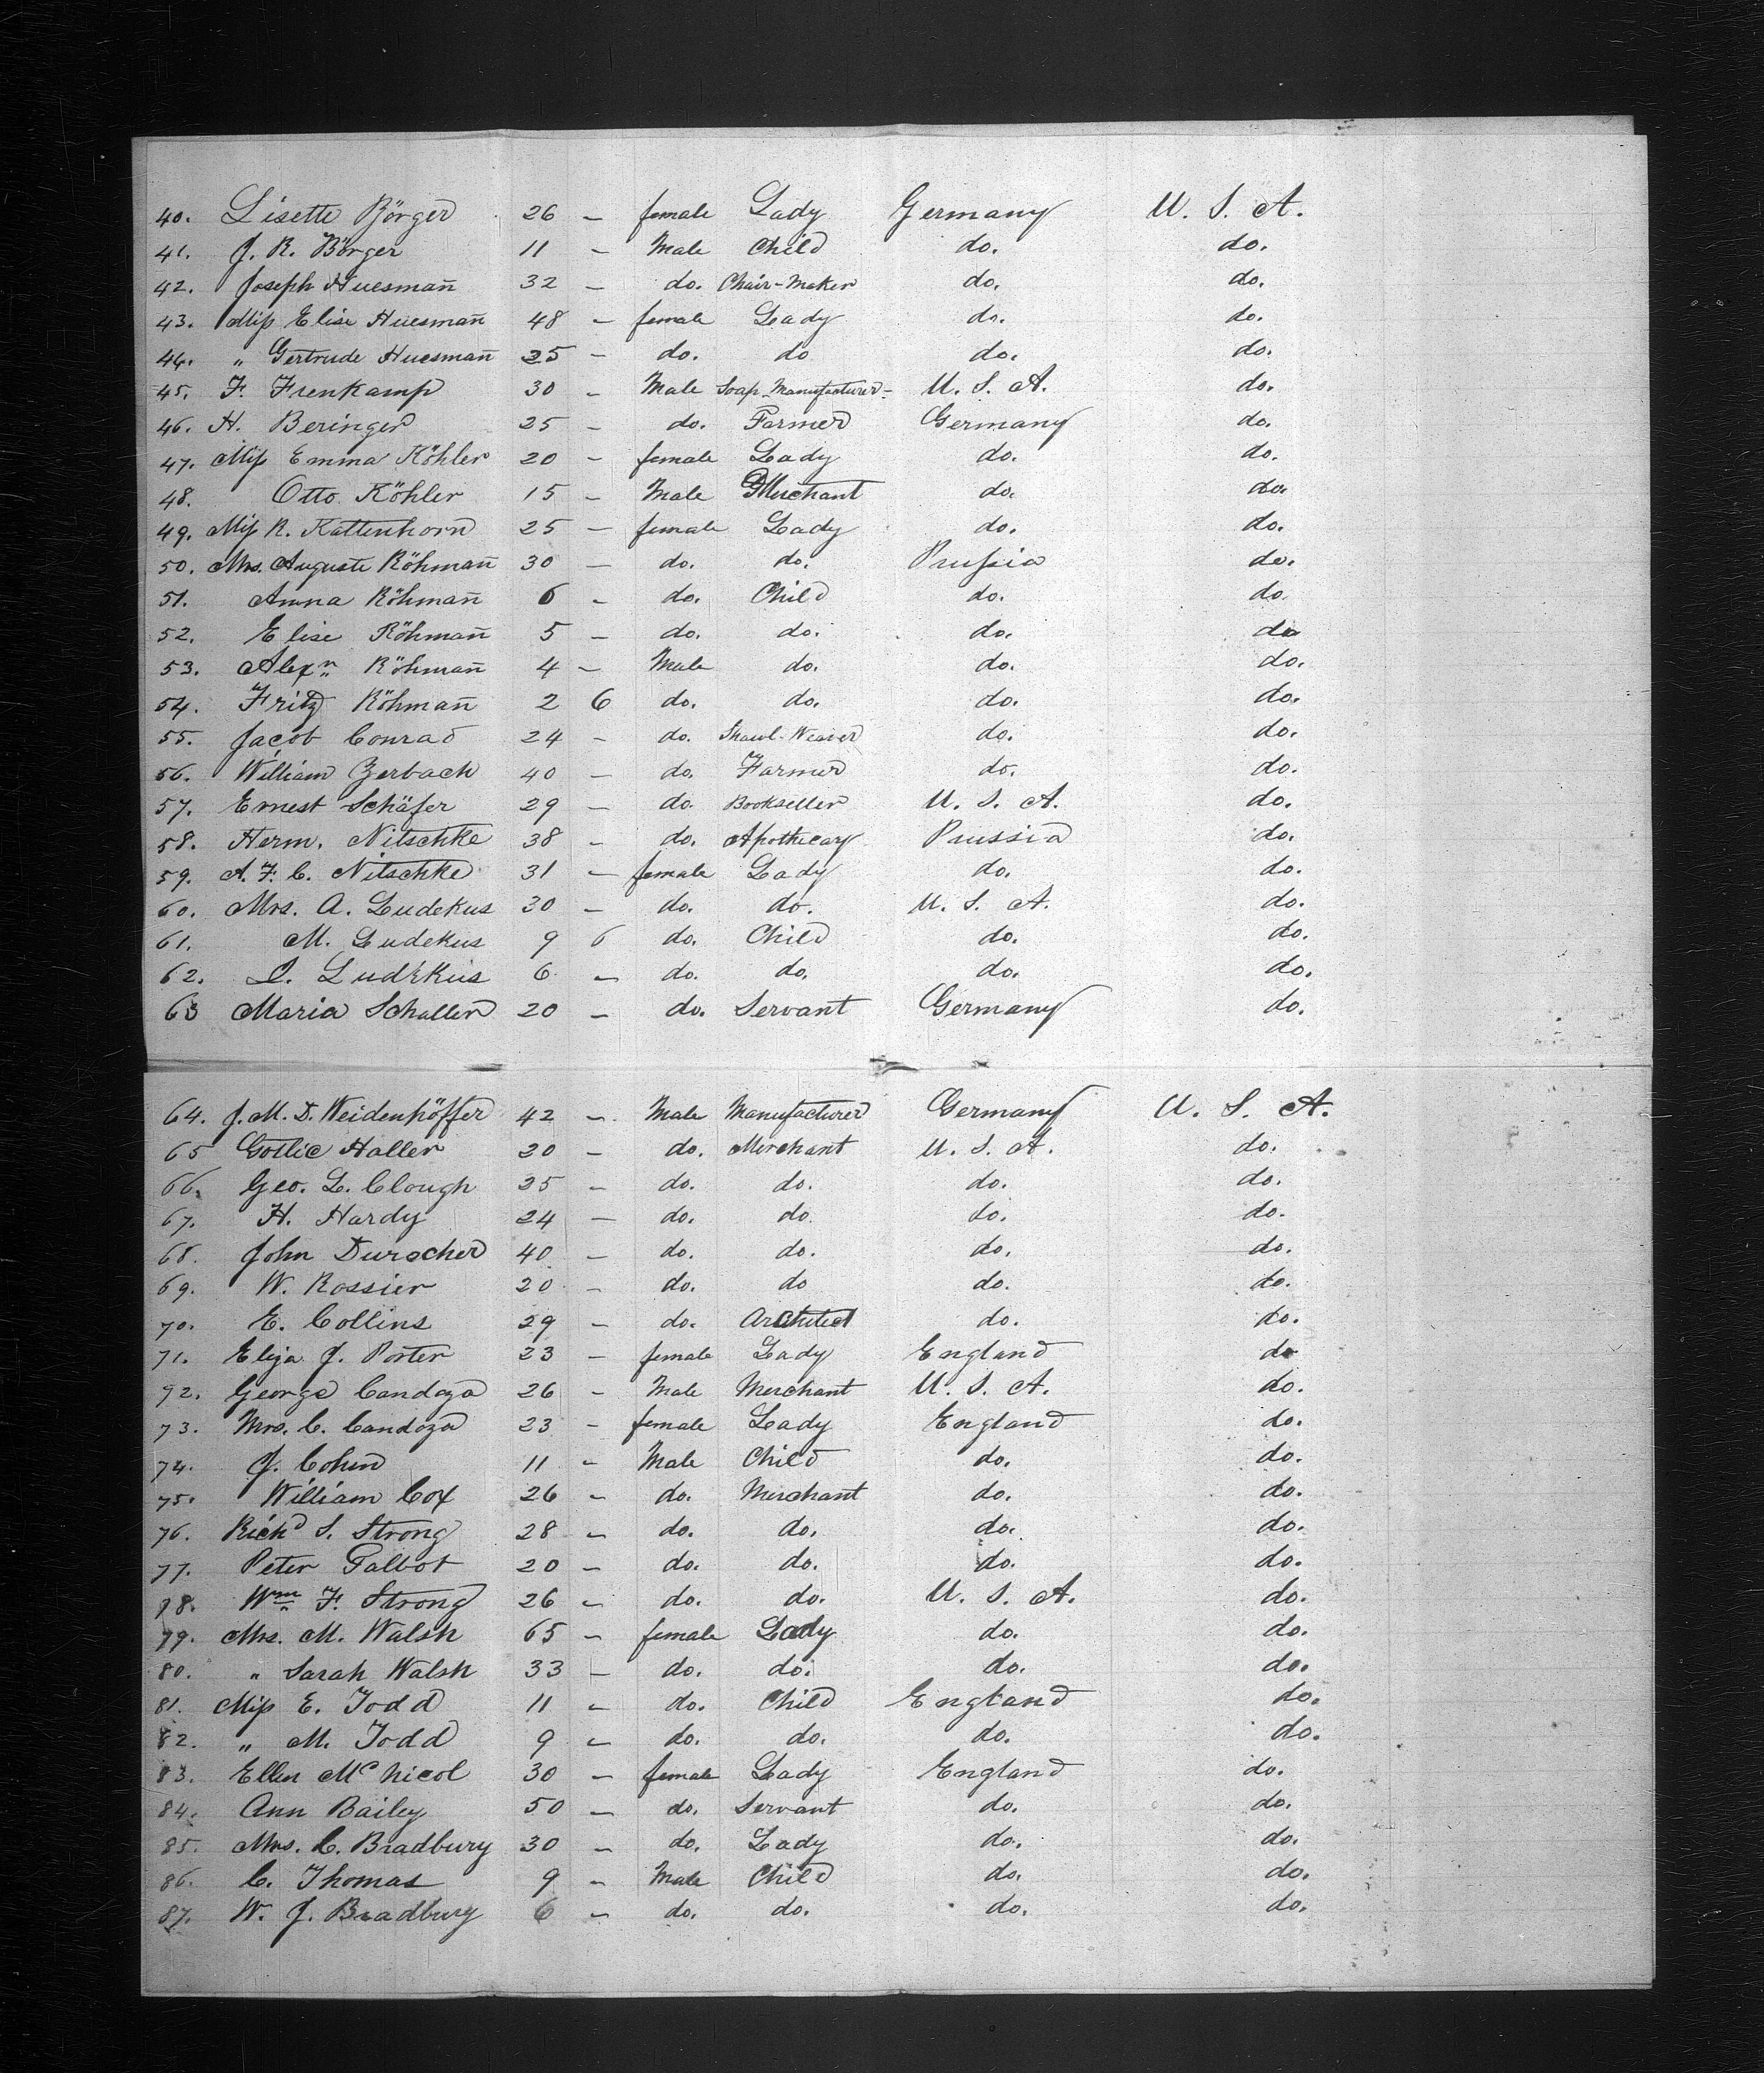 40. Lisette Börger 26 - female Lady Germany U. S. A.
41. J. R. Börger 11 - Male Child do. do.
42. Joseph Huesmañ 32 - do. Chair-Maker do. do.
43. Miss Elise Huesmañ 48 - female Lady do. do.
44. " Gertrude Huesmañ 25 - do. do do. do.
45. F. Frenkamp 30 - Male Soap-Manufacturer- U. S. A. do.
46. H. Beringer 25 - do. Farmer Germany do.
47. Miss Emma Köhler 20 - female Lady do. do.
48. Otto Köhler 15 - Male Merchant do. do.
49. Miss R. Kattenhorn 25 - female Lady do. do.
50. Mrs. Auguste Röhmañ 30 - do. do. Prussia do.
51. Anna Röhmañ 6 - do. Child do. do.
52. Elise Röhmañ 5 - do. do. do. do
53. Alexn Röhmañ 4 - Male do. do. do.
54. Fritz Röhmañ 2 6 do. do. do. do.
55. Jacob Conrad 24 - do. Shawl-Weaver do. do.
56. William Zerbach 40 - do. Farmer do. do.
57. Ernest Schäfer 29 - do. Bookseller U. S. A. do.
58. Herm. Nitschke 38 - do. Apothecary Prussia do.
59. A. F. C. Nitschke 31 - female Lady do. do.
60. Mrs. A. Ludekus 30 - do. do. U. S. A. do.
61. M. Ludekus 9 6 do. Child do. do.
62. Ludekus 6 - do. do. do. do.
63 Maria Schaller 20 - do. Servant Germany do.
64. J. M. D. Weidenhöffer 42 - Male Manufacturer Germany U. S. A.
65 Gottlie Haller 20 - do. Merchant U. S. A. do.
66. Geo. L. Clough 35 - do. do. do. do.
67. H. Hardy 24 - do. do. do. do.
68. John Duracher 40 - do. do. do. do.
69. W. Rossier 20 - do. do do. do.
70. E. Collins 29 - do. Architect do. do.
71. Eliza J. Porter 23 - female Lady England do
72. George Candoza 26 - Male Merchant U. S. A. do.
73. Mrs. C. Candoza 23 - female Lady England do.
74. J. Cohen 11 - Male Child do. do.
75. William Cox 26 - do. Merchant do. do.
76. Richd S. Strong 28 - do. do. do. do.
77. Peter Talbot 20 - do. do. do. do.
78. Wm F. Strong 26 - do. do. U. S. A. do.
79. Mrs. M. Walsh 65 - female Lady do. do.
80. " Sarah Walsh 33 - do. do. do. do.
81. Miss E. Todd 11 - do. Child England do.
82. " M. Todd 9 - do. do. do. do.
83. Ellen McNicol 30 - female Lady England do.
84. Ann Bailey 50 - do. Servant do. do.
85. Mrs. C. Bradbury 30 - do. Lady do. do.
86. C. Thomas 9 - Male Child do. do.
87. W. J. Bradbury 6 - do. do. do. do.